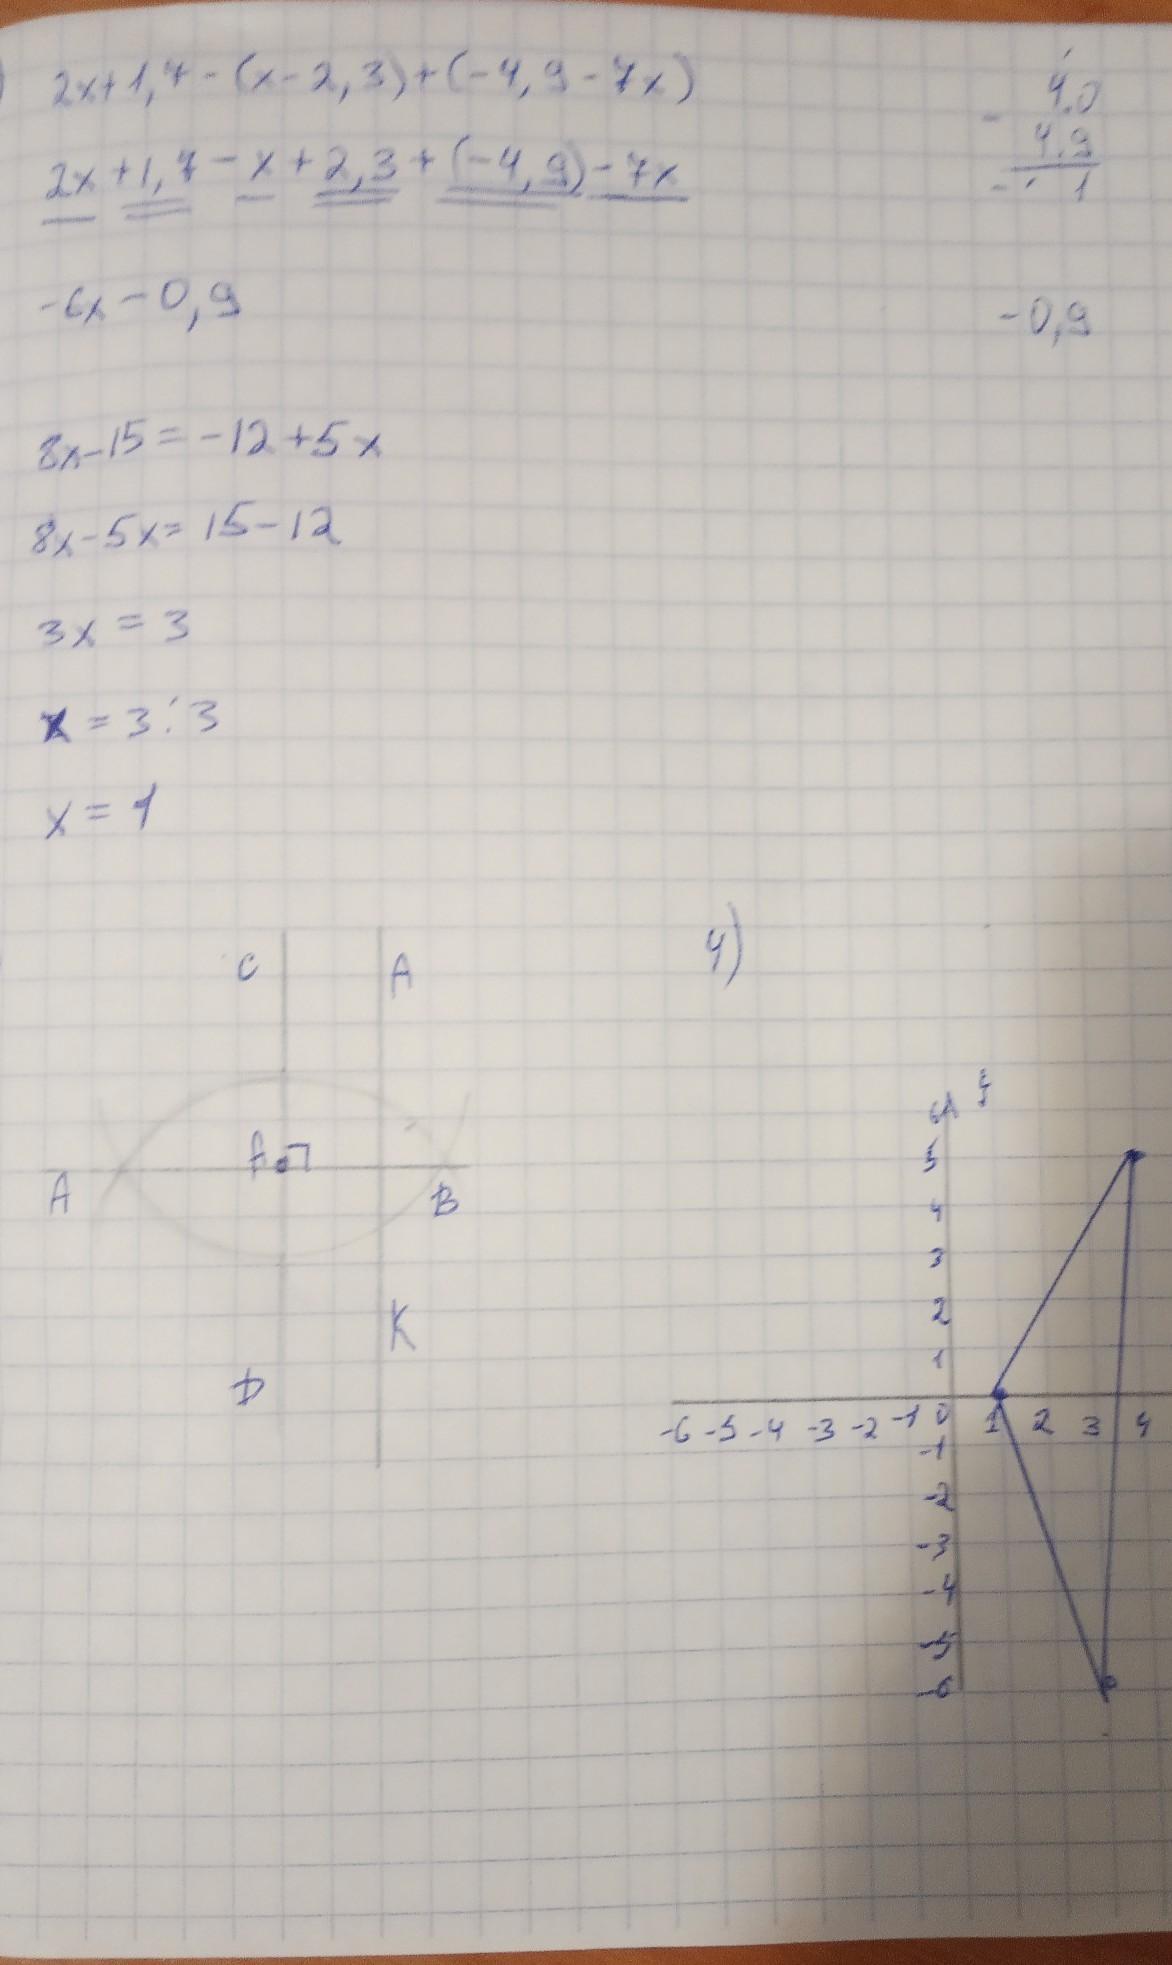 ) 2x+1,7-(x-2,3)+(-4,9-7x)
2x+1,7-x+2,3+(-4,9)-7x
-6x-0,9
4.0
- 4.9
- 1
-0,9
8x-15=-12+5x
8x-5x=15-12
3x=3
x=3:3
x=1
C A
A
A B
K
D
4)
6 y
5
4
3
2
1
-6 -5 -4 -3 -2 -1 0 1 2 3 4
-1
-2
-3
-4
-5
-6